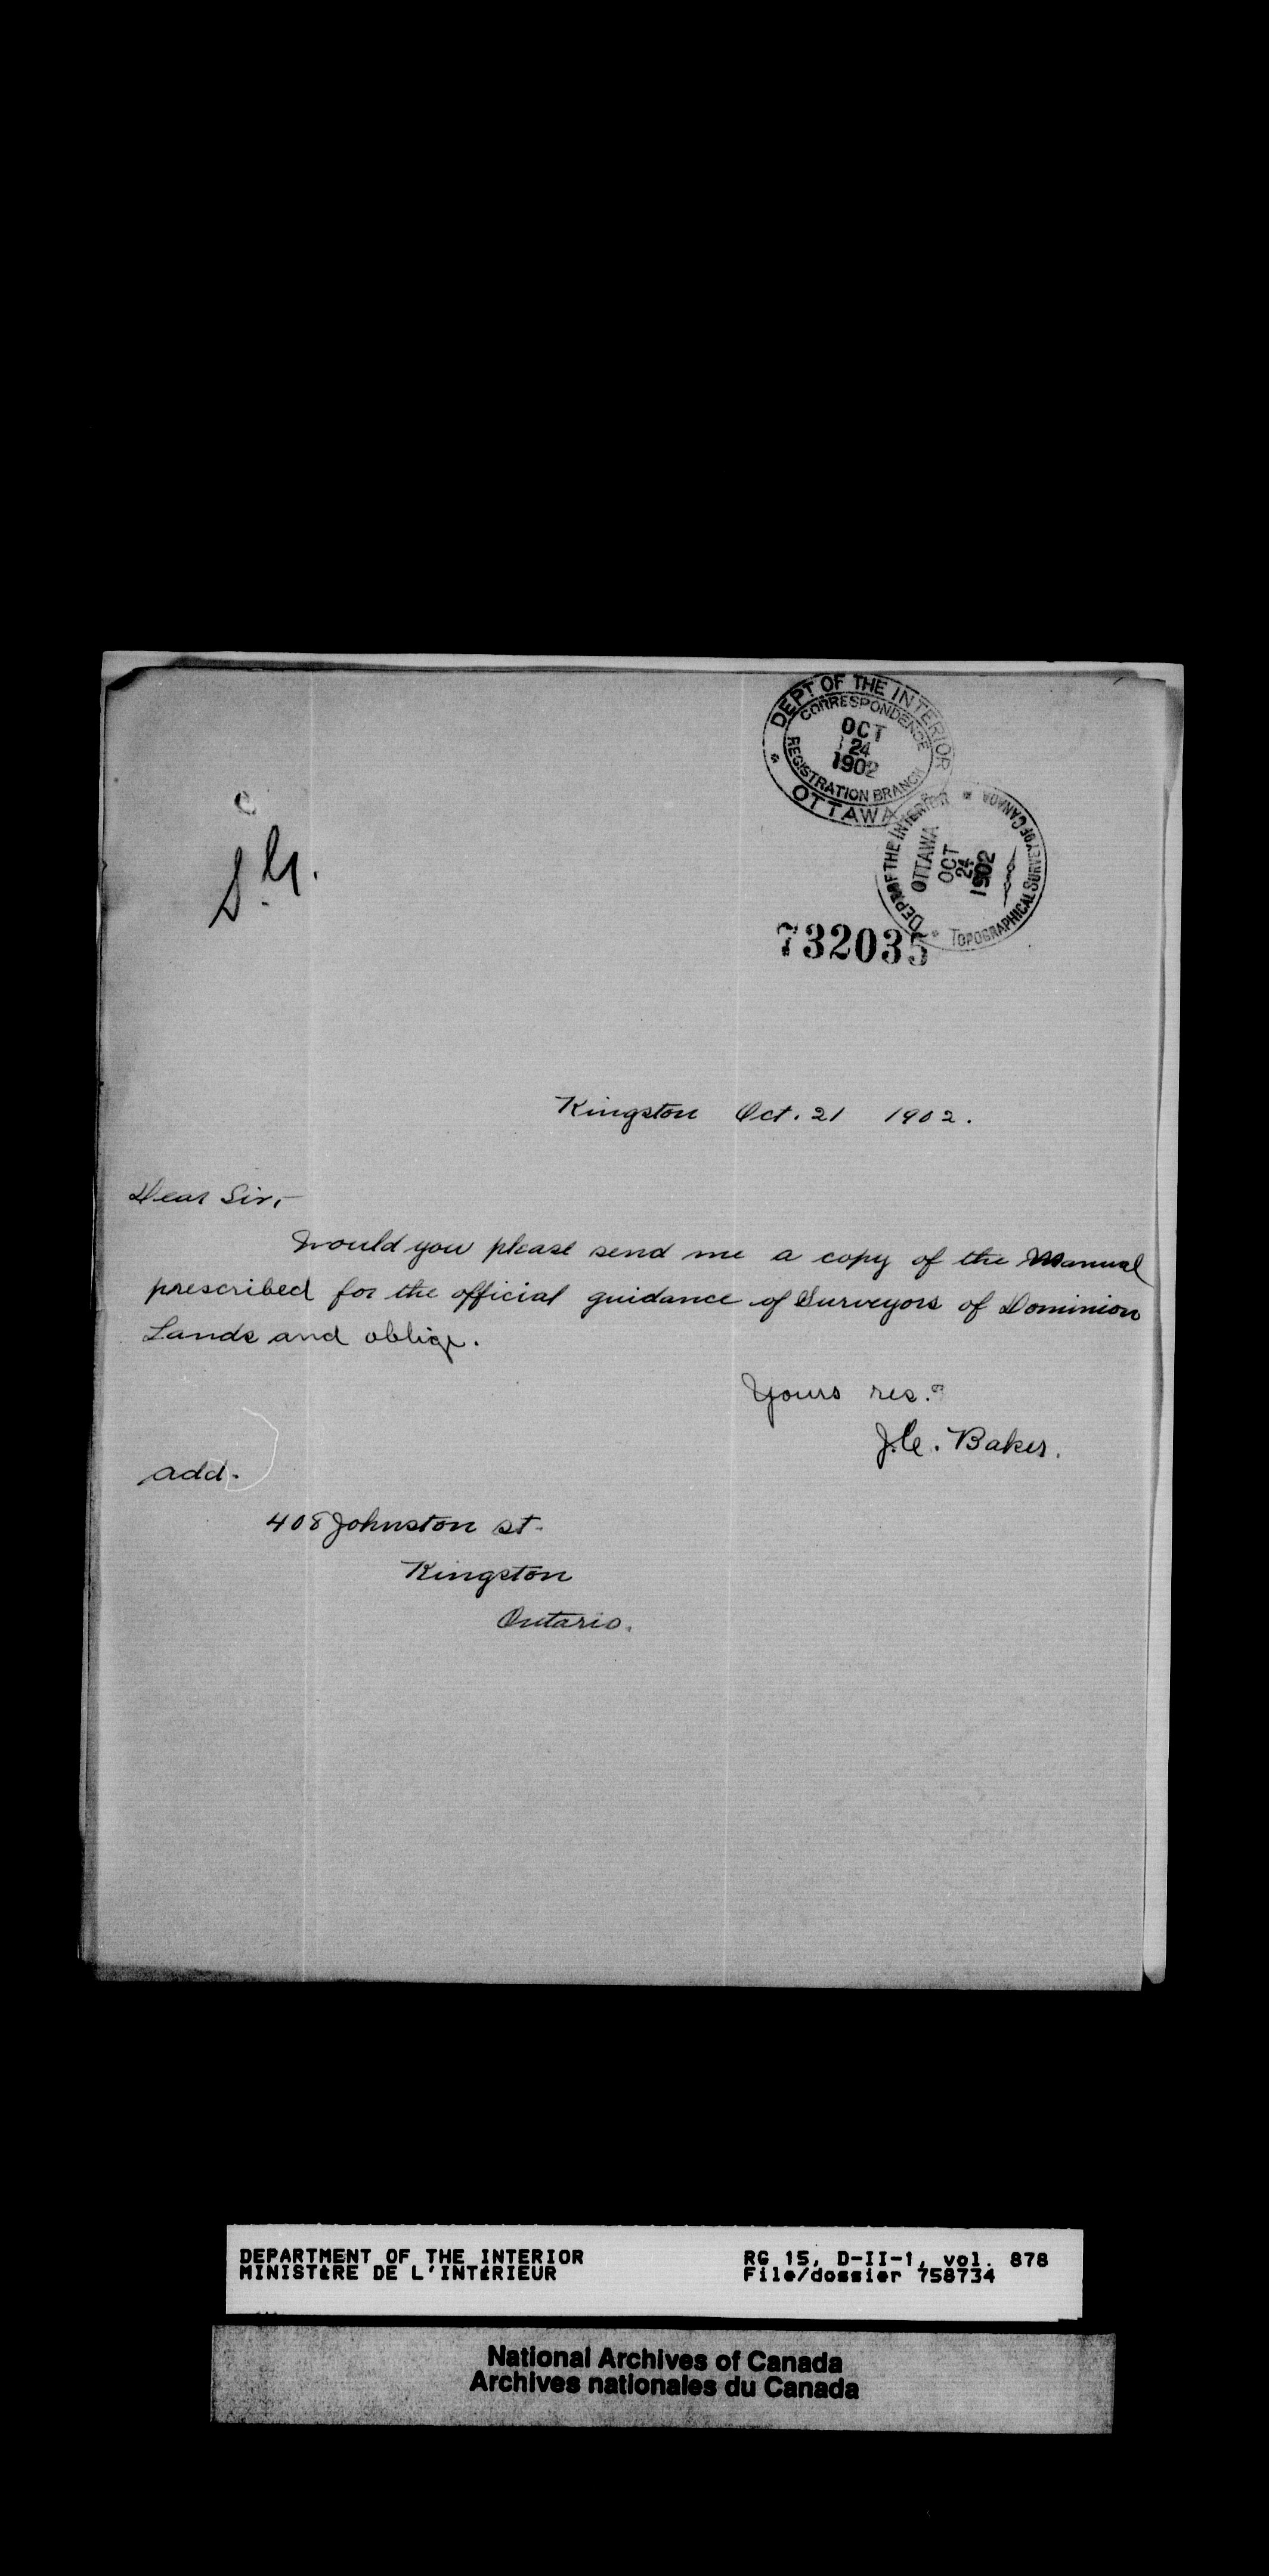 DEPT OF THE INTERIOR
CORRESPONDENCE
OCT
24
1902
REGISTRATION BRANCH
OTTAWA
DEPT OF THE INTERIOR
OTTAWA
OCT
24
1902
TOPOGRAPHICAL SURVEY OF CANADA
732035
Kingston Oct. 21 1902.
Dear Sir,-
Would you please send me a copy of the Manual
prescribed for the official guidance of Surveyors of Dominion
Lands and oblige.
Yours res.
Baker.
add.
408 Johnston st.
Kingston
Ontario.
DEPARTMENT OF THE INTERIOR RG 15, D-II-1, vol. 878
MINISTÈRE DE L'INTÉRIEUR File/dossier 758734
National Archives of Canada
Archives nationales du Canada